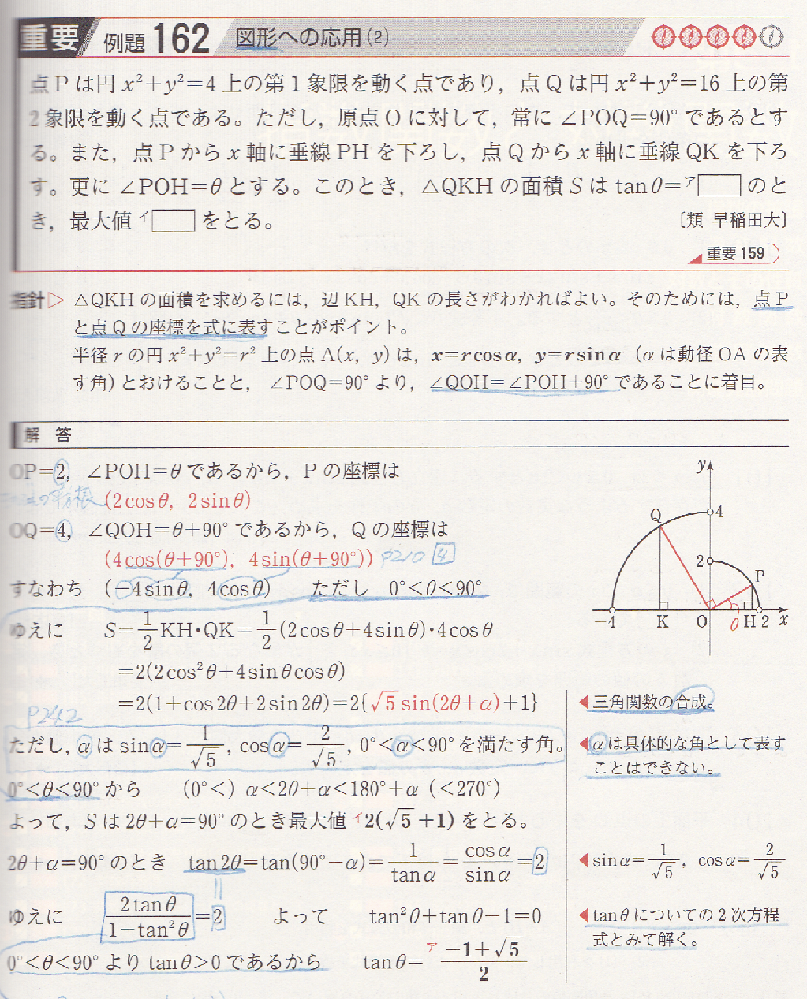 重要 例題 162 図形への応用(2)
点Pは円 x²+y²=4 上の第1象限を動く点であり，点Qは円 x²+y²=16 上の第
2象限を動く点である。ただし，原点Oに対して，常に ∠POQ=90° であるとす
る。また，点Pからx軸に垂線PHを下ろし，点Qからx軸に垂線QKを下ろ
す。更に ∠POH=θ とする。このとき，△QKHの面積Sは tanθ=ア□ のと
き，最大値 イ□ をとる。 〔類 早稲田大〕
重要 159
指針▷ △QKHの面積を求めるには，辺KH，QKの長さがわかればよい。そのためには，点P
と点Qの座標を式に表すことがポイント。
半径rの円 x²+y²=r² 上の点A(x, y)は，x=rcosα，y=rsinα （αは動径OAの表
す角）とおけることと，∠POQ=90° より，∠QOH=∠POH+90° であることに着目。
解 答
OP=2，∠POH=θ であるから，Pの座標は
(2cosθ, 2sinθ)
OQ=4，∠QOH=θ+90° であるから，Qの座標は
(4cos(θ+90°), 4sin(θ+90°)) P210 4
すなわち (−4sinθ, 4cosθ) ただし 0°<θ<90°
ゆえに S=1/2 KH・QK=1/2 (2cosθ+4sinθ)・4cosθ
=2(2cos²θ+4sinθcosθ)
=2(1+cos2θ+2sin2θ)=2{√5 sin(2θ+α)+1}
◀三角関数の合成。
P242
ただし，αは sinα=1/√5，cosα=2/√5，0°<α<90° を満たす角。
◀αは具体的な角として表す
ことはできない。
0°<θ<90° から (0°<) α<2θ+α<180°+α (<270°)
よって，Sは 2θ+α=90° のとき最大値 イ2(√5+1) をとる。
2θ+α=90° のとき tan2θ=tan(90°−α)=1/tanα=cosα/sinα=2
◀sinα=1/√5，cosα=2/√5
ゆえに 2tanθ/1−tan²θ=2 よって tan²θ+tanθ−1=0
◀tanθについての2次方程
式とみて解く。
0°<θ<90° より tanθ>0 であるから tanθ=ア −1+√5/2
y
Q
4
2
P
−4 K O θ H 2 x